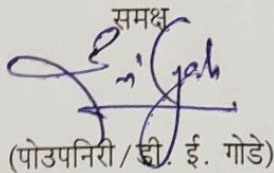 समक्ष
(पोउपनिरी / डी. ई. गोडे)